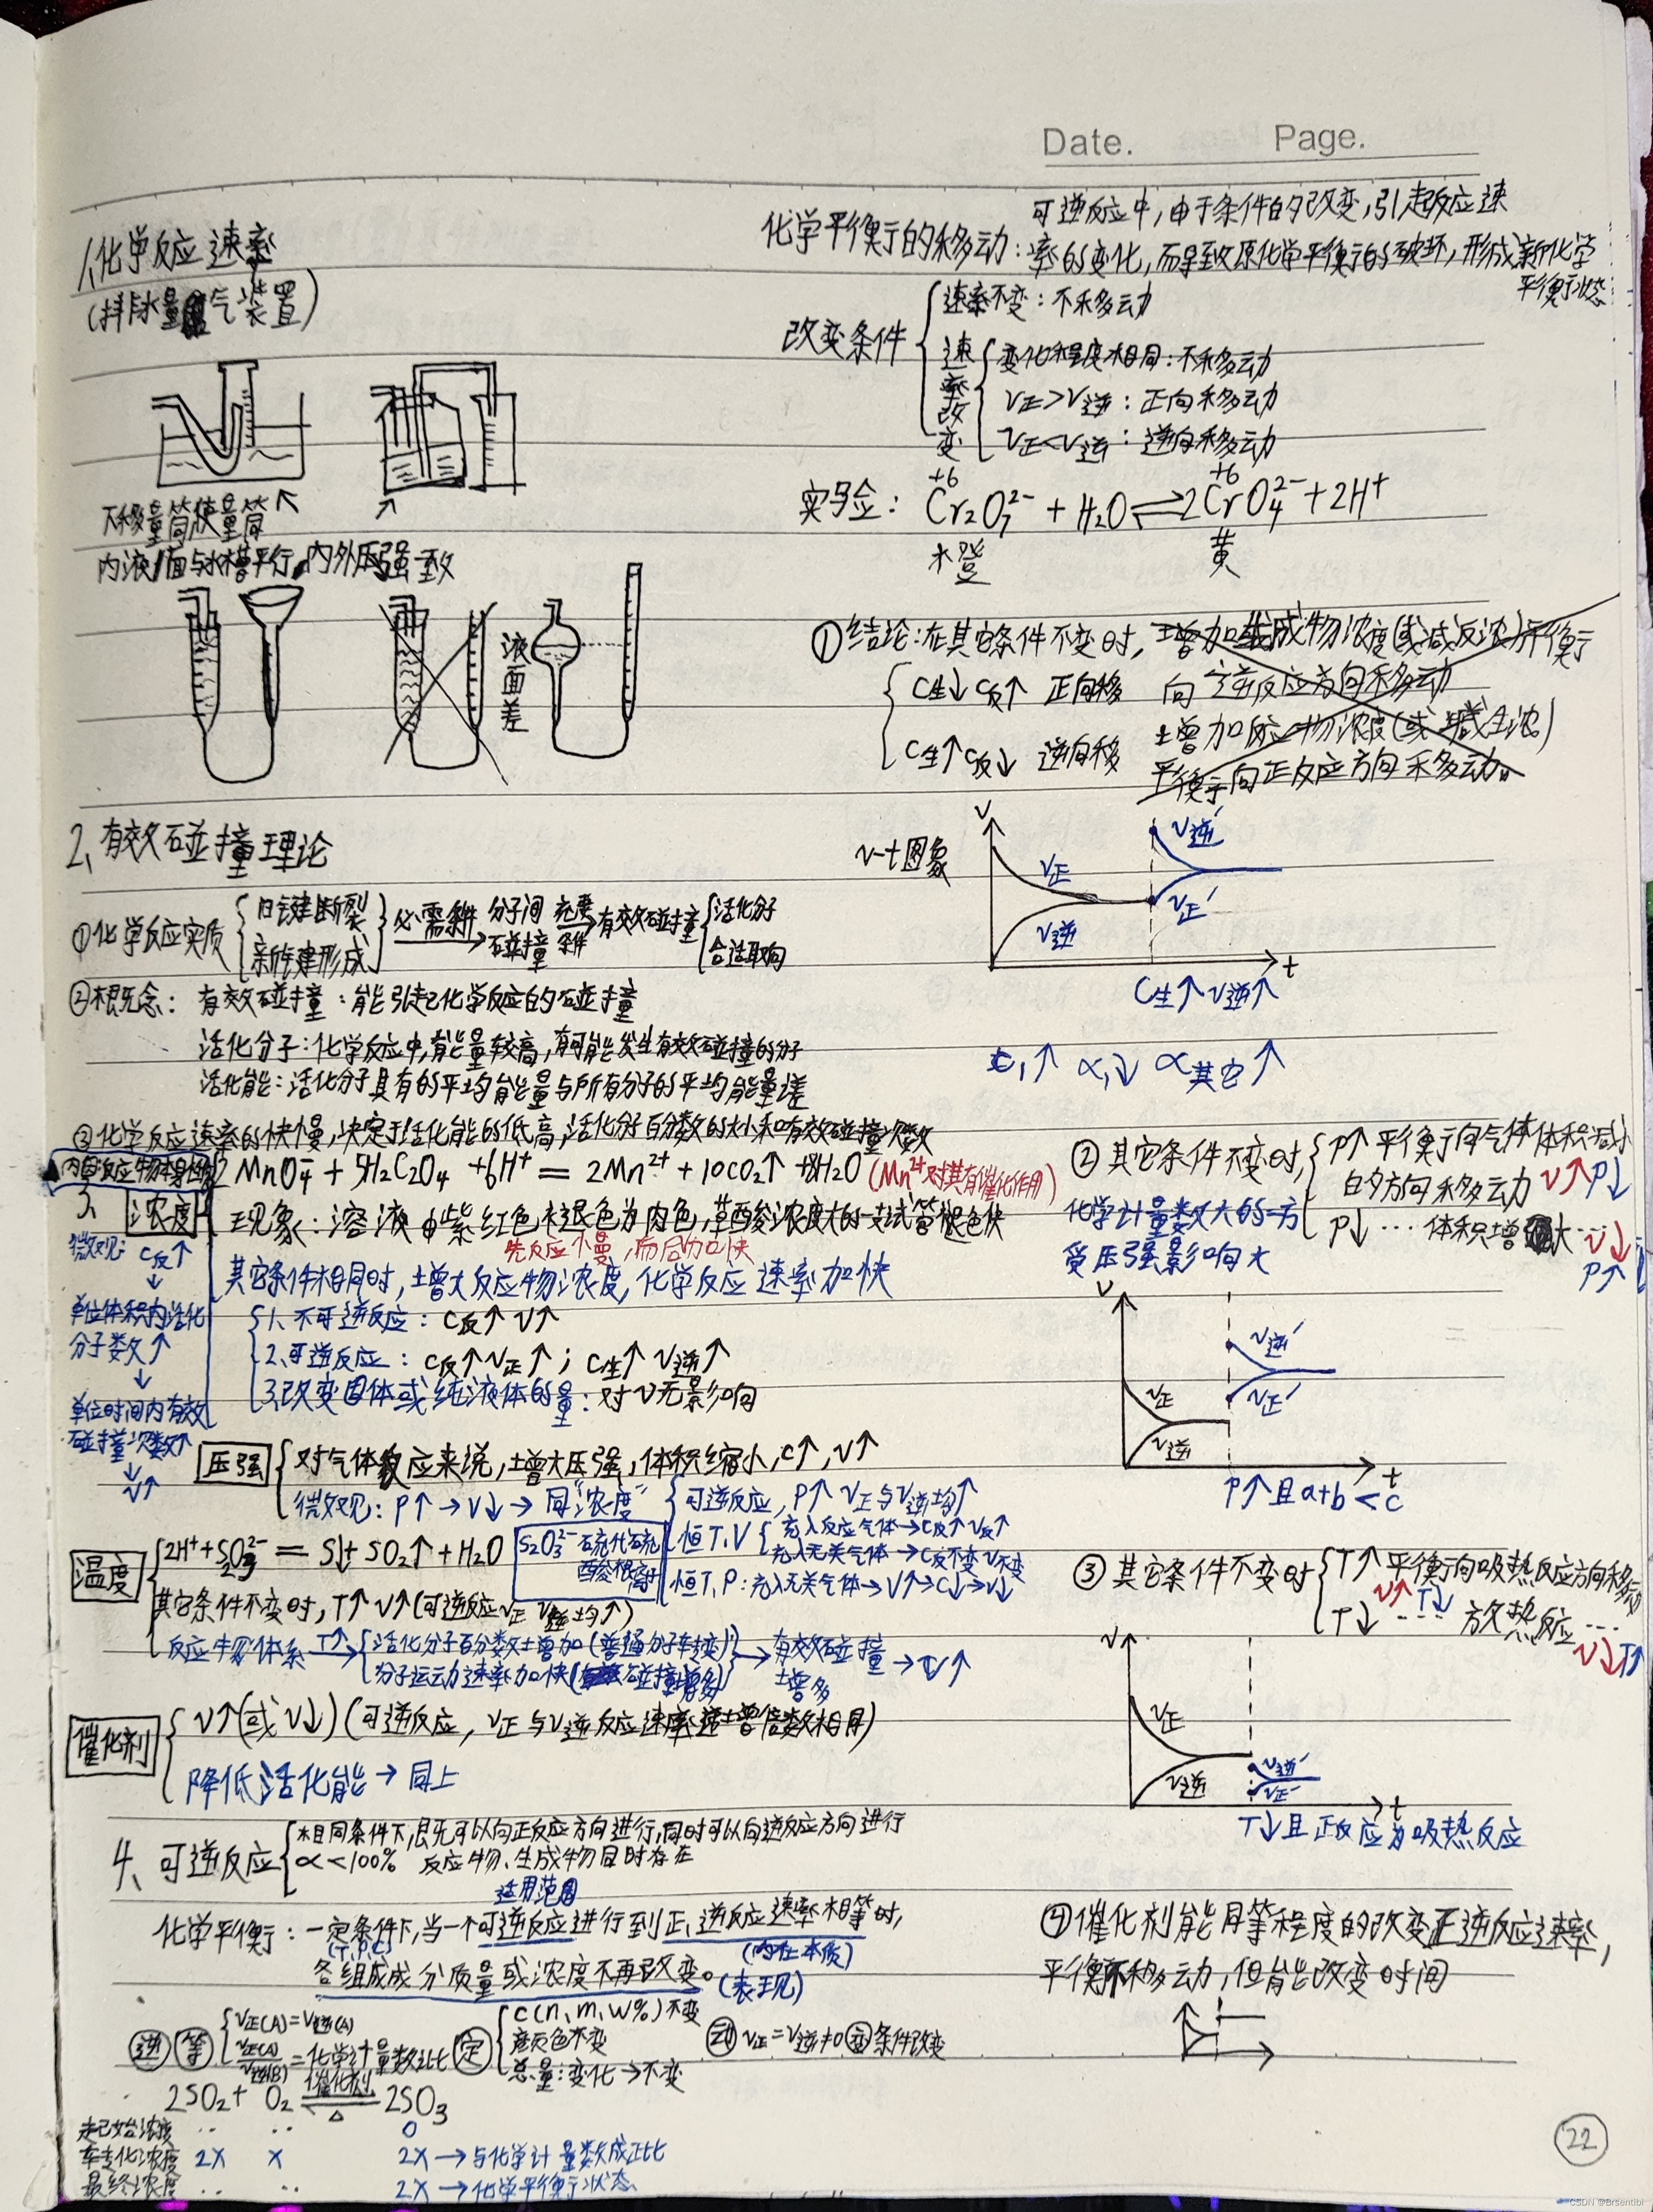 Date. Page.
1、化学反应速率
(排水量气装置)
不移量筒使量筒
内液面与水槽平行,内外压强一致
液面差
2、有效碰撞理论
①化学反应实质 旧键断裂 新键形成 必需条件 分子间碰撞 充要条件 有效碰撞 活化分子 合适取向
②概念: 有效碰撞:能引起化学反应的碰撞
活化分子:化学反应中,能量较高,有可能发生有效碰撞的分子
活化能:活化分子具有的平均能量与所有分子的平均能量差
③化学反应速率的快慢,决定于活化能的低高,活化分子百分数的大小和有效碰撞次数
2MnO₄⁻ + 5H₂C₂O₄ + 6H⁺ = 2Mn²⁺ + 10CO₂↑ + 8H₂O (Mn²⁺对其有催化作用)
3、浓度
现象:溶液由紫红色褪色为肉色,草酸浓度大的一支试管褪色快
先反应慢,而后加快
其它条件相同时,增大反应物浓度,化学反应速率加快
1、不可逆反应:C反↑ V↑
2、可逆反应:C反↑V正↑;C生↑V逆↑
3、改变固体或纯液体的量:对V无影响
微观: C反↑
↓
单位体积内活化
分子数↑
↓
单位时间内有效
碰撞次数↑
↓
V↑
压强 对气体反应来说,增大压强,体积缩小,C↑,V↑
微观:P↑→V↓→同"浓度"
可逆反应,P↑ V正与V逆均↑
恒T,V 充入反应气体→C反↑V反↑
充入无关气体→C反不变V不变
恒T,P:充入无关气体→V↑→C↓→V↓
温度 2H⁺+S₂O₃²⁻ = S↓+SO₂↑+H₂O
S₂O₃²⁻ 硫代硫酸根离子
其它条件不变时,T↑V↑(可逆反应V正 V逆均↑)
反应物体系 T↑→ 活化分子百分数增加(普通分子转变)
分子运动速率加快(碰撞增多)
→有效碰撞增多→V↑
催化剂 V↑(或V↓)(可逆反应,V正与V逆反应速率递增倍数相同)
降低活化能→同上
4、可逆反应 相同条件下,既可以向正反应方向进行,同时可以向逆反应方向进行
α<100% 反应物、生成物同时存在
适用范围
化学平衡:一定条件下,当一个可逆反应进行到正、逆反应速率相等时,
(T,P,C) (内在本质)
各组成成分质量或浓度不再改变。(表现)
逆 等 V正(A)=V逆(A)
V正(A)/V逆(B)=化学计量数之比
定 C(n,m,w%)不变
颜色不变
总量:变化→不变
动 V正=V逆≠0 变 条件改变
2SO₂+ O₂ ⇌ 2SO₃ 催化剂 △
起始浓度 ·· ·· 0
转化浓度 2X X 2X→与化学计量数成正比
最终浓度 ·· ·· 2X→化学平衡状态
化学平衡的移动:可逆反应中,由于条件的改变,引起反应速
率的变化,而导致原化学平衡的破坏,形成新化学
平衡状态
改变条件 速率不变:不移动
速率改变 变化程度相同:不移动
V正>V逆:正向移动
V正<V逆:逆向移动
实验: +6 +6
Cr₂O₇²⁻ + H₂O ⇌ 2CrO₄²⁻ + 2H⁺
橙 黄
①结论:在其它条件不变时,增加生成物浓度(或减反浓)平衡
向逆反应方向移动
增加反应物浓度(或减生浓)
平衡向正反应方向移动。
C生↓C反↑ 正向移
C生↑C反↓ 逆向移
v-t图象
V V正 V逆 V逆′ V正′ t
C生↑V逆↑
C₁↑ α₁↓ α其它↑
②其它条件不变时, P↑平衡向气体体积减小
的方向移动 V↑P↓
P↓ ··· 体积增大 ··· V↓P↑
化学计量数大的一方
受压强影响大
V V正 V逆 V逆′ V正′ t
P↑且a+b<c
③其它条件不变时 T↑平衡向吸热反应方向移动
V↑ T↓
T↓ ···· 放热反应 ···
V↓T↑
V V正 V逆 V逆′ V正′ t
T↓且正反应为吸热反应
④催化剂能同等程度的改变正逆反应速率,
平衡不移动,但能改变时间
22
CSDN @Brsentibi